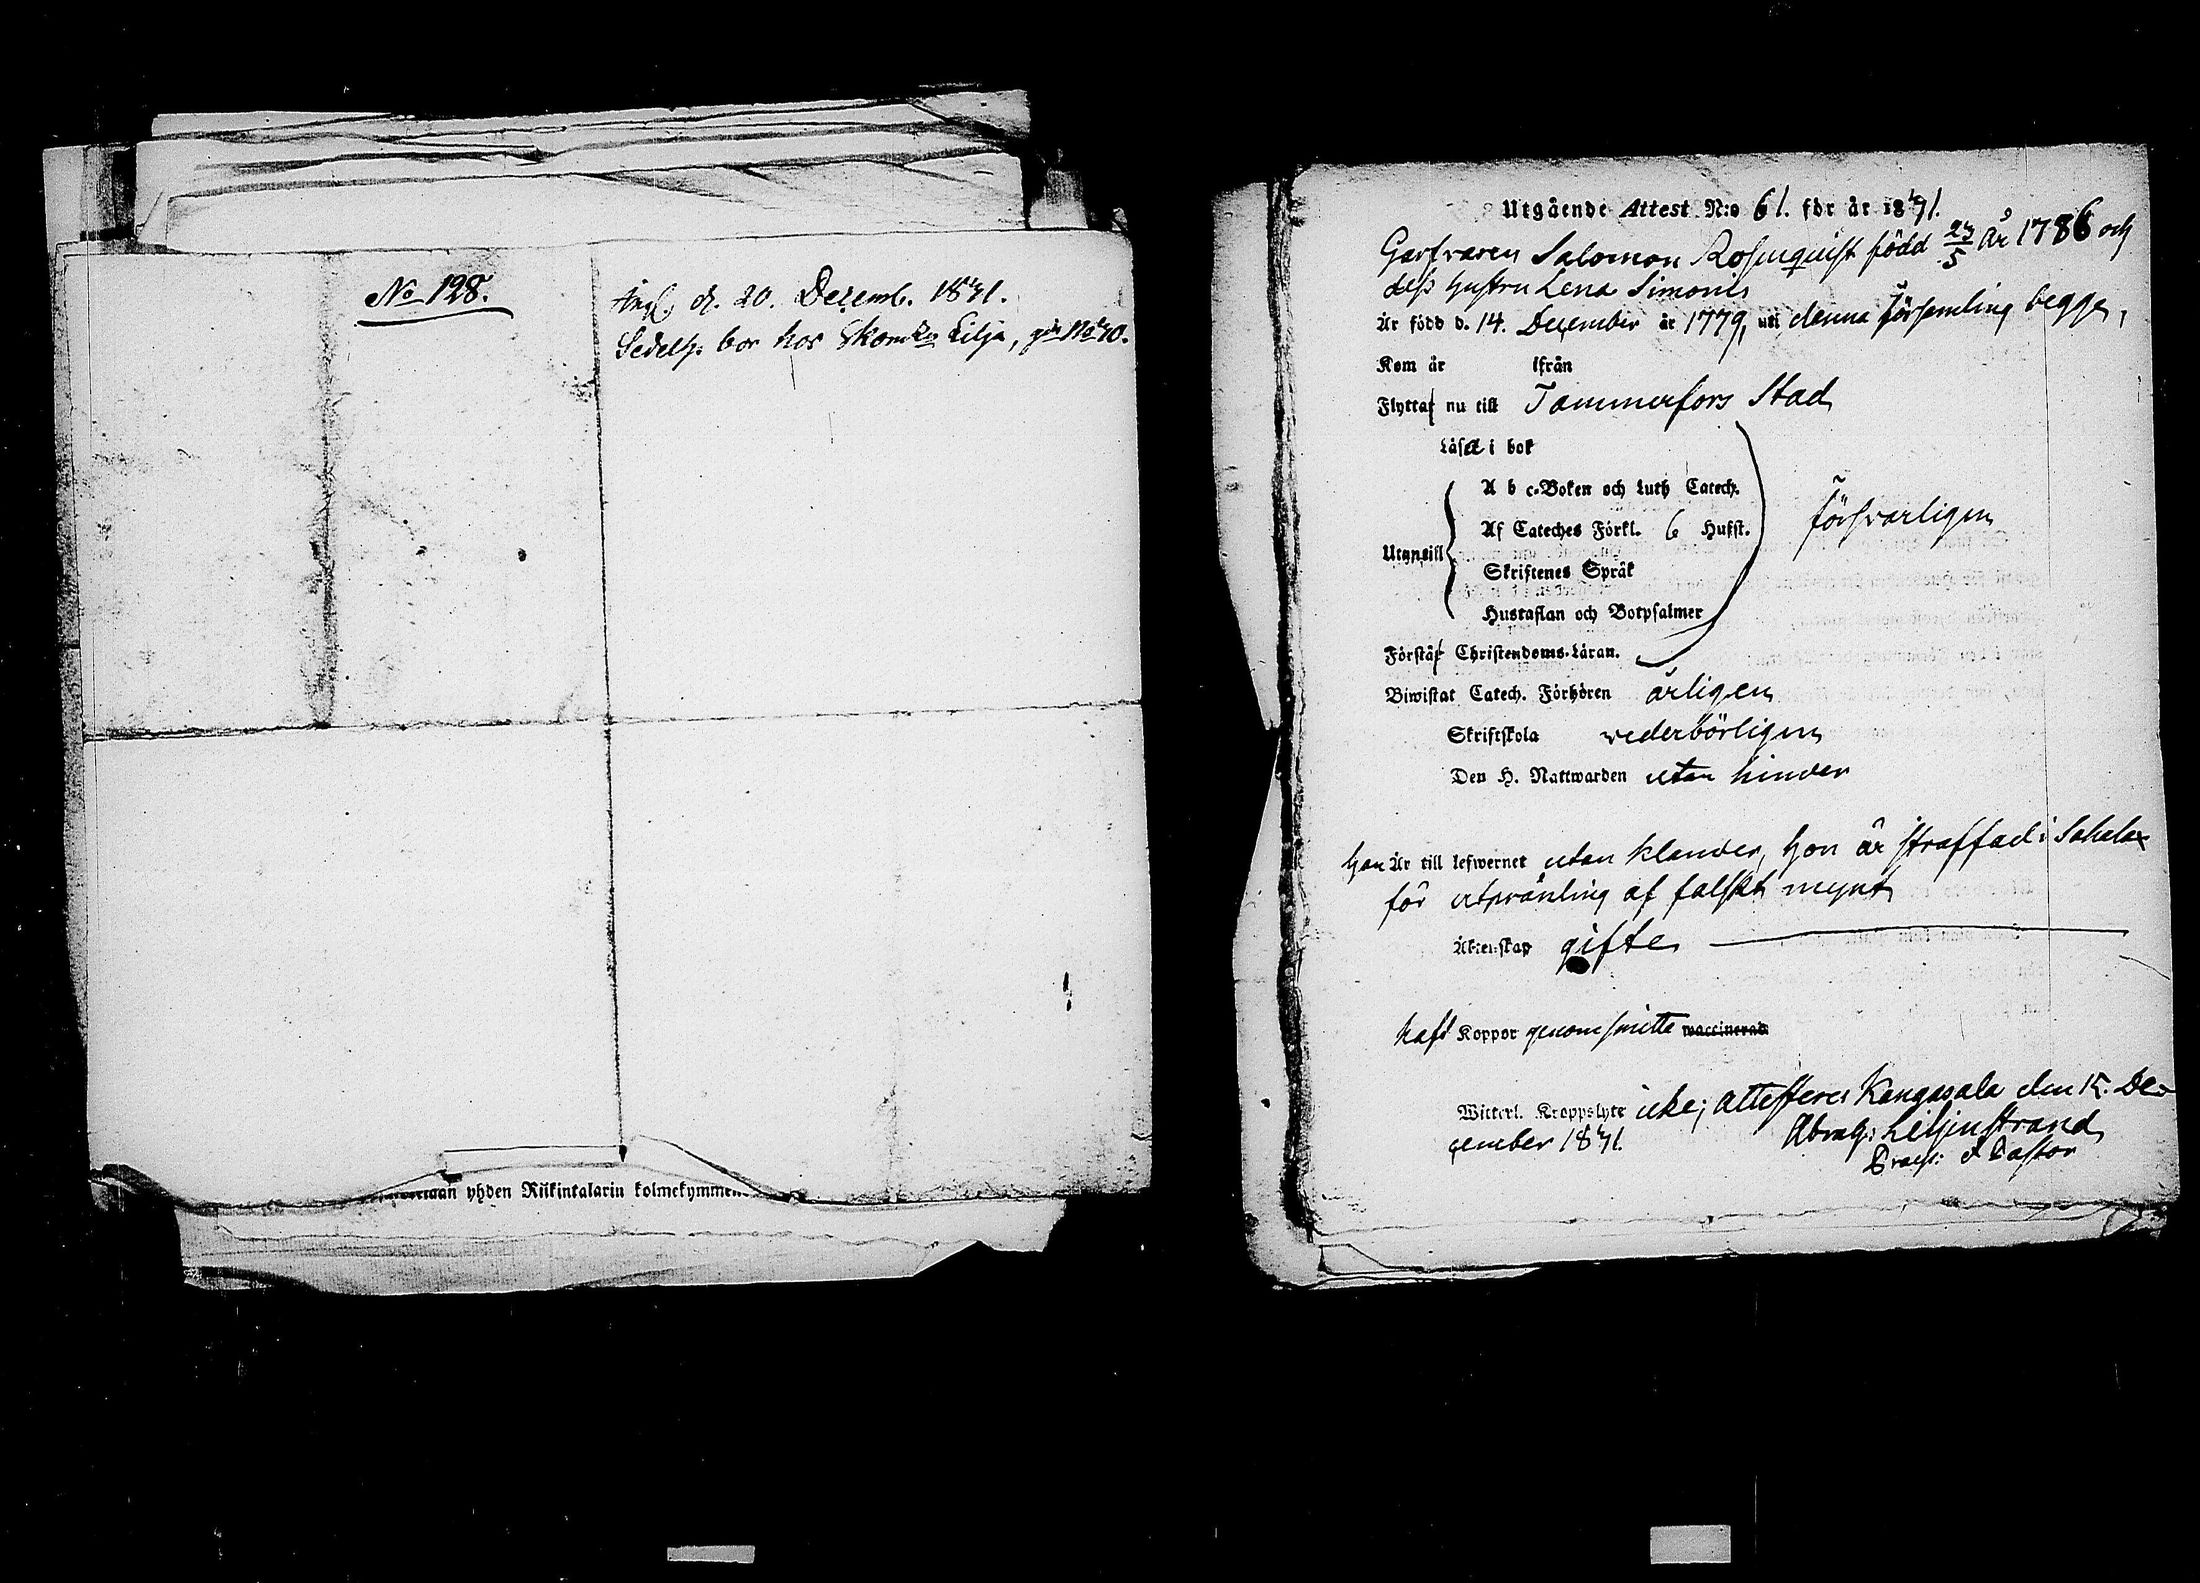 No 128.
d. 20. Decemb. 1841.
bor hos Lilja, No 40.
yhden Riikintalarin kolmekymmen
Utgående Attest N:o 61. för år 1841.
Garfvaren Salomon Rosenquist född 23/5 år 1786 och
dess hustru Lena Simonis
Är född d. 14. December år 1779, uti denna församling begge,
Kom år ifrån
Flytta nu till Tammerfors Stad
Läsa i bok
A b c-Boken och Luth Catech.
Af Cateches Förkl. 6 Hufst. försvarligen
Utantill
Skriftenes Språk
Hustaflan och Botpsalmer
Förstå Christendoms-Läran.
Biwistat Catech. Förhören årligen
Skriftskola vederbörligen
Den H. Nattwarden utan hinder
han Är till lefwernet utan klander, hon är straffad i Sahalax
för utprånling af falskt mynt
Äktenskap gifte
haft Koppor genomsmitta waccinerad
Witterl. Kroppslyte icke; attesteres Kangasala den 15. De-
cember 1841. Abrah: Liljenstrand
Pastor